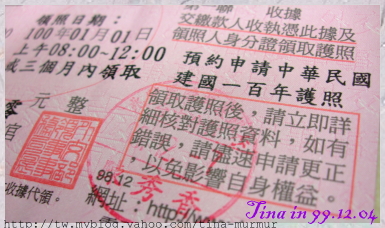 第一聯 收據
交繳款人收執憑此據及
領照人身分證領取護照
領照日期：
100年01月01日
上午08:00~12:00
或三個月內領取
預約申請中華民國
建國一百年護照
元 整
領取護照後，請立即詳
細核對護照資料，如有
錯誤，請儘速申請更正
，以免影響自身權益。
98.12
秀香
收據代領。
網址：http://www
Tina in 99.12.04
http://tw.myblog.yahoo.com/tina-murmur